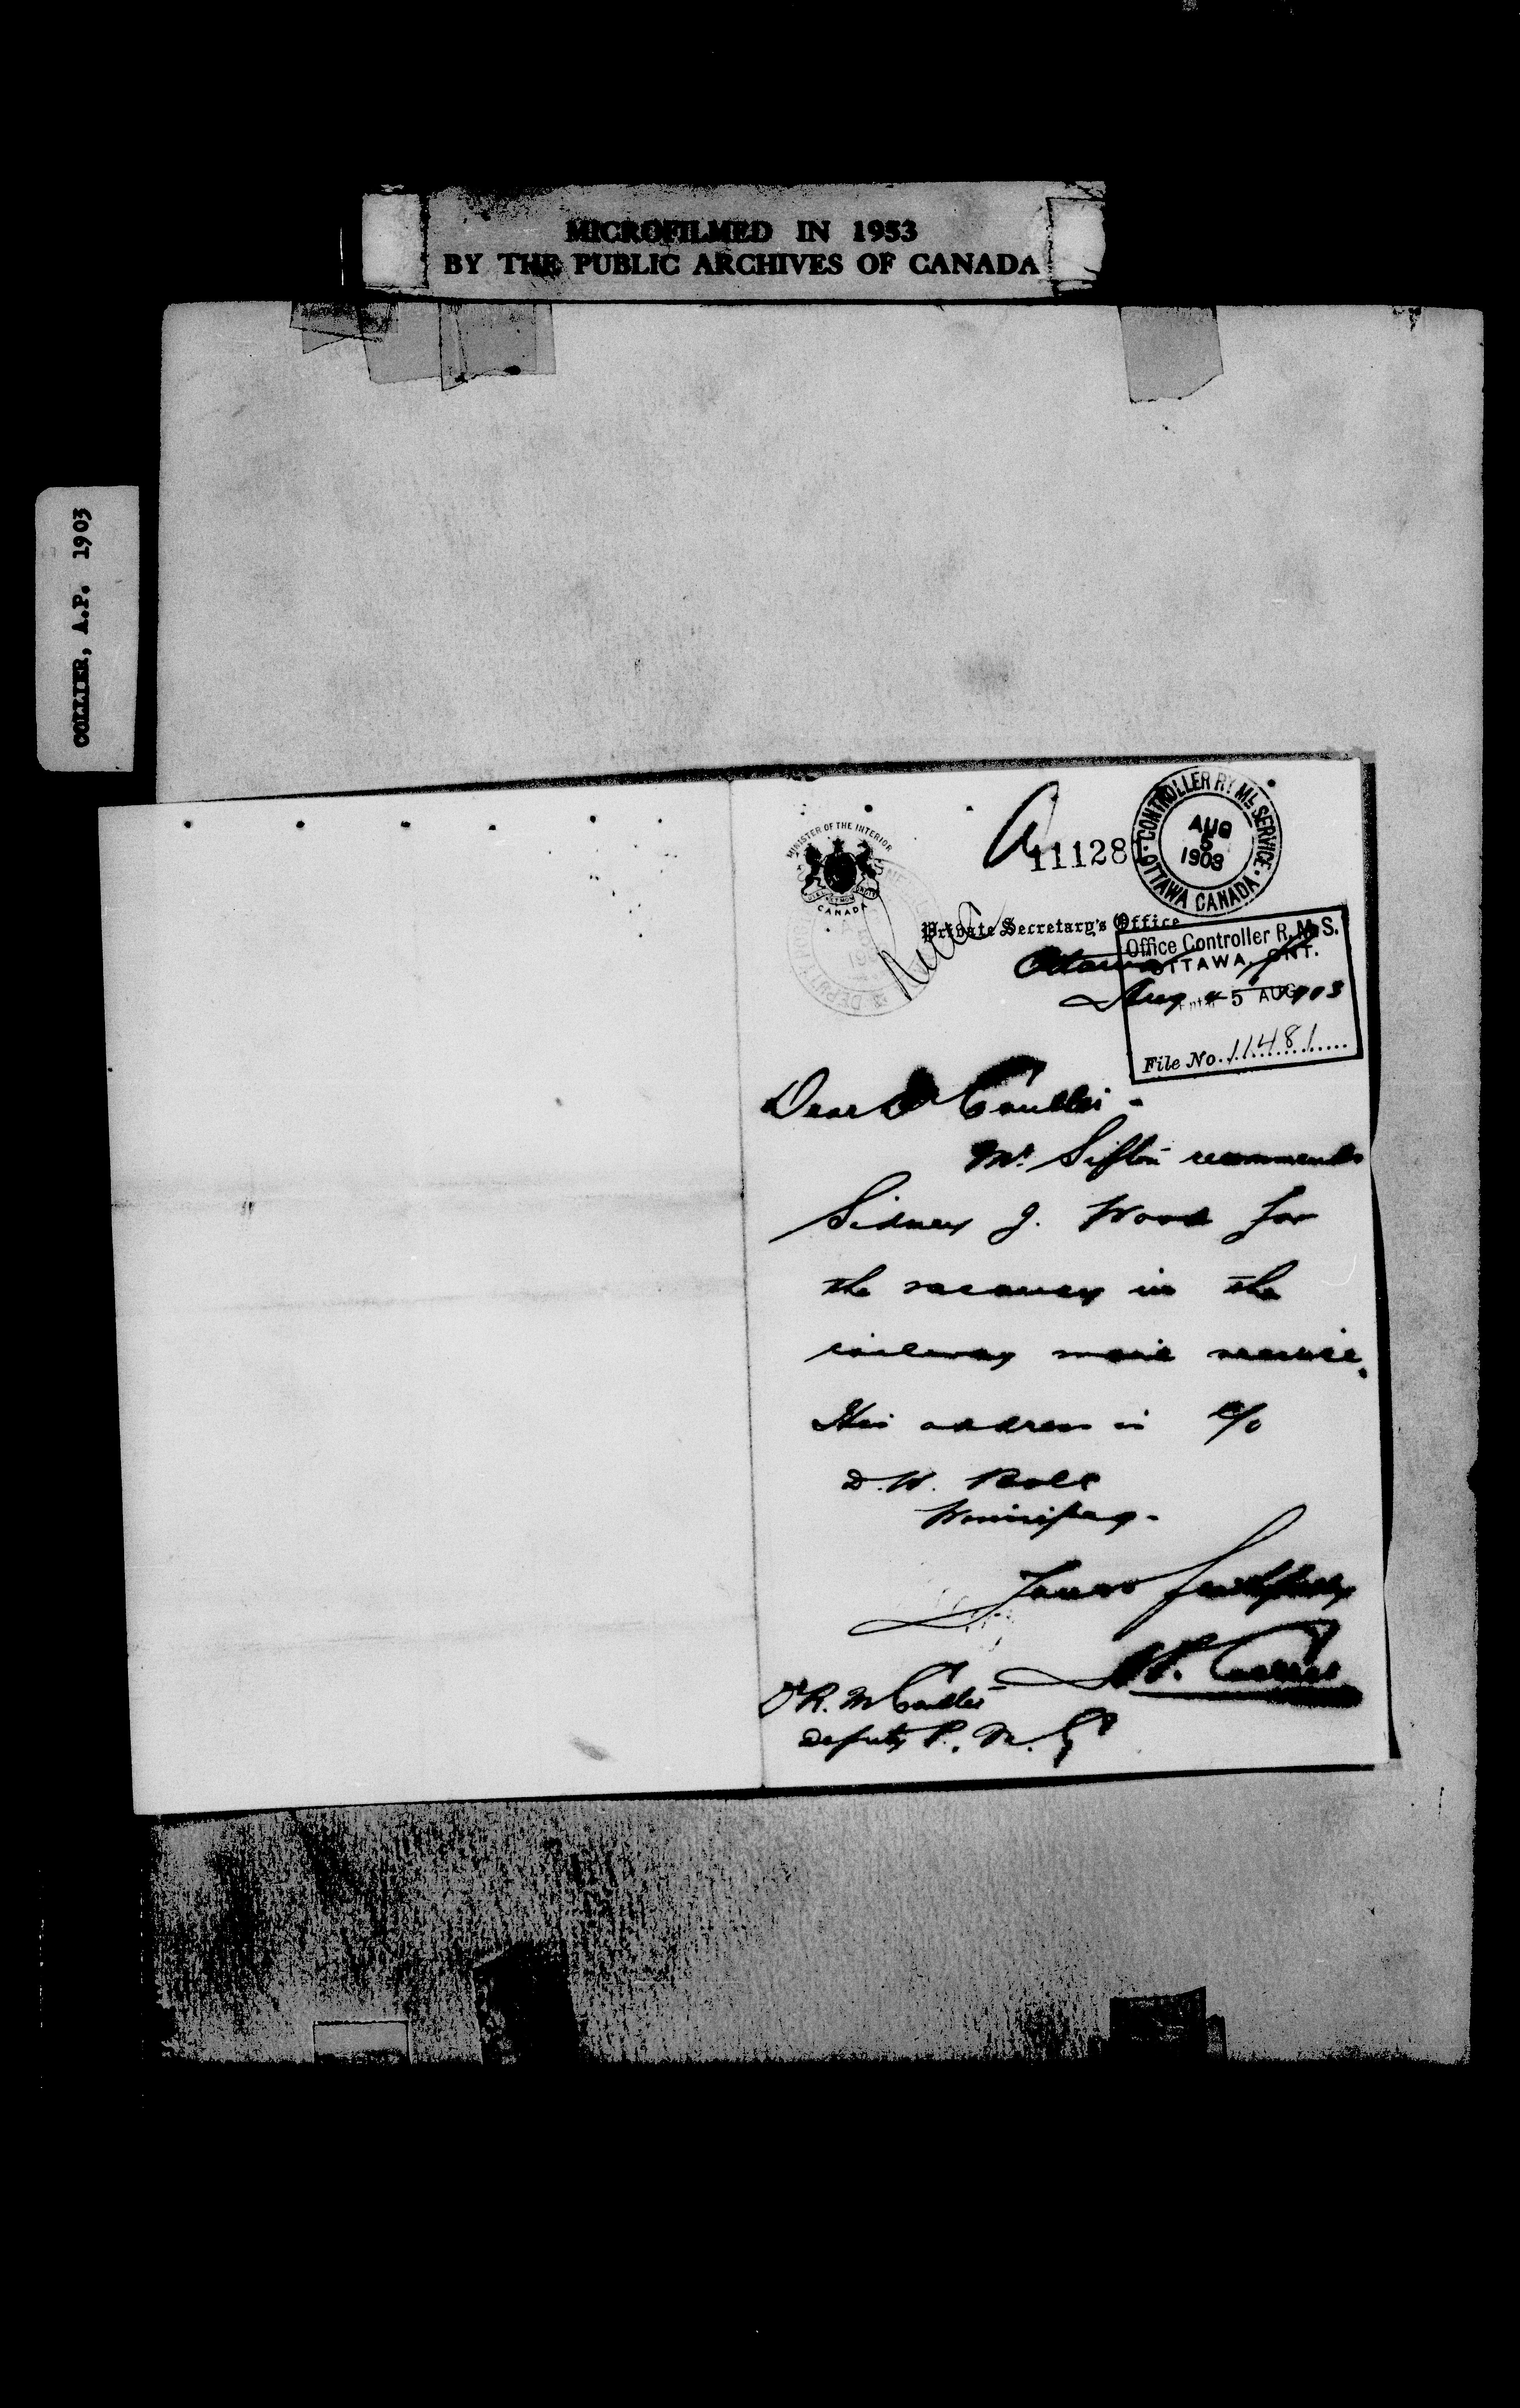 MICROFILMED IN 1953
BY THE PUBLIC ARCHIVES OF CANADA
COLLIER, A.P. 1903
MINISTER OF THE INTERIOR
CANADA
A 11128
CONTROLLER RY ML SERVICE
AUG
5
1903
OTTAWA CANADA
Private Secretary's Office
Office Controller R.M.S.
OTTAWA, ONT.
5 AUG
File No. 11481
Ottawa
Aug 4 1903
Dear Dr Coulter -
Mr. Sifton recommends
Sidney J. Wood for
the vacancy in the
railway mail service.
His address is c/o
D. W. Bole
Winnipeg.
Yours faithfully
A.P. Collier
Dr R. M. Coulter
Deputy P. M. G.